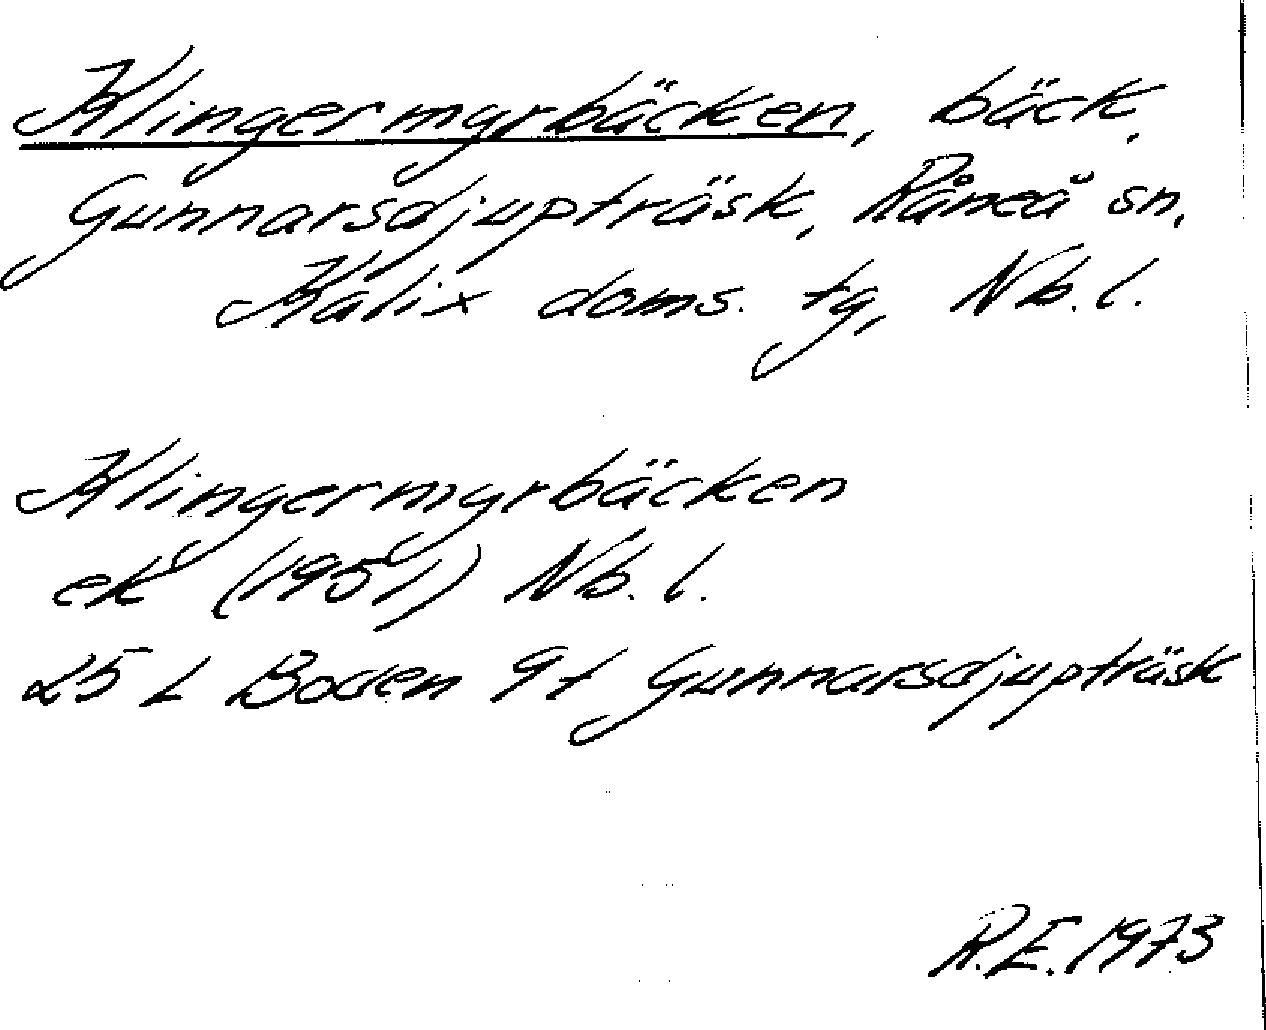 Klingermyrbäcken, bäck,
Gunnarsdjupträsk, Råneå sn,
Kalix doms. tg, Nb. l.
Klingermyrbäcken
ek (1951) Nb. l.
25 L Boden 9f Gunnarsdjupträsk
R.E. 1973